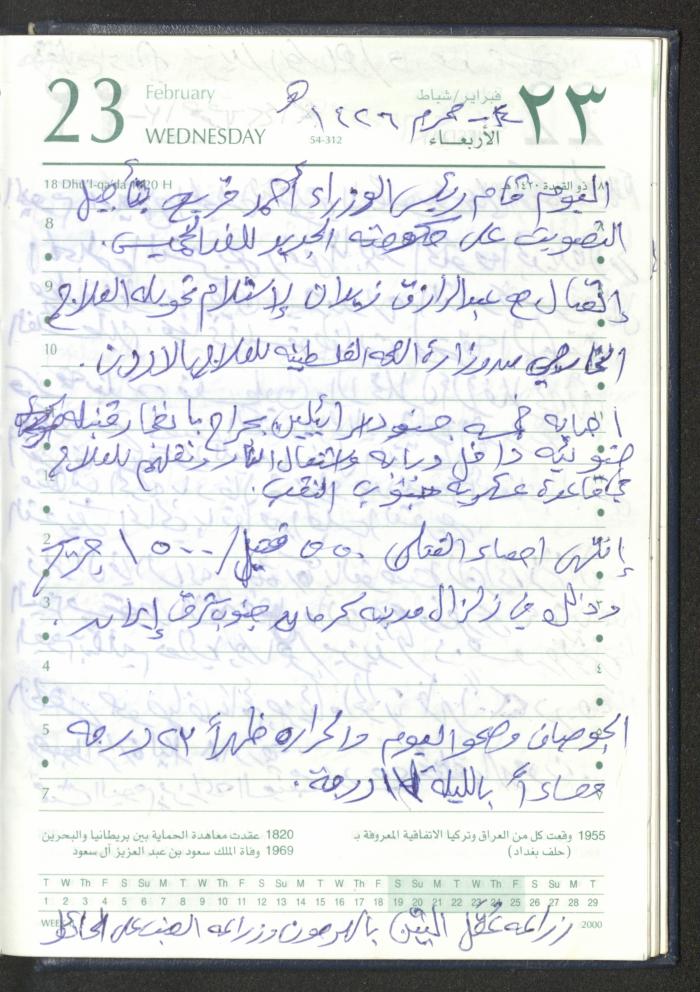 23
February
WEDNESDAY
54-312
فبراير/شباط
الأربعاء
٢٣
١٤ محرم ١٤٢٦ هـ
18 Dhu'l-qa'da 1420 H
١٨ ذو القعدة ١٤٢٠ هـ
اليوم قام رئيس الوزراء أحمد قريع بتأجيل
التصويت على حكومته الجديد للغد الخميس.
إتصال مع عبد الرازق زيدان لإستلام تحويله العلاج
الخارجي من وزارة الصحة الفلسطينيه للعلاج بالأردن.
اصابه خمسه جنود اسرائيلين بجراح بانفجار قنبله
ضوئيه داخل دبابه واشتعال النار ونقلهم للعلاج
في قاعدة عسكريه جنوب النقب.
إنتهى احصاء القتلى ٥٥٠ قتيل/ ١٥٠٠ جريح
وذلك في زلزال مدينه كرمان جنوب شرق إيران.
الجو صاف وصحو اليوم والحراره ظهراً ٢٣ درجه
مساءاً بالليلة ١٧ درجة.
8
9
10
1
2
3
4
٤
5
7
1820 عقدت معاهدة الحماية بين بريطانيا والبحرين
1969 وفاة الملك سعود بن عبد العزيز آل سعود
1955 وقعت كل من العراق وتركيا الاتفاقية المعروفة بـ
(حلف بغداد)
T W Th F S Su M T W Th F S Su M T W Th F S Su M T W Th F S Su M T
1 2 3 4 5 6 7 8 9 10 11 12 13 14 15 16 17 18 19 20 21 22 23 24 25 26 27 28 29
2000
زراعه عُقل التين بالهرمون وزراعه العنب على